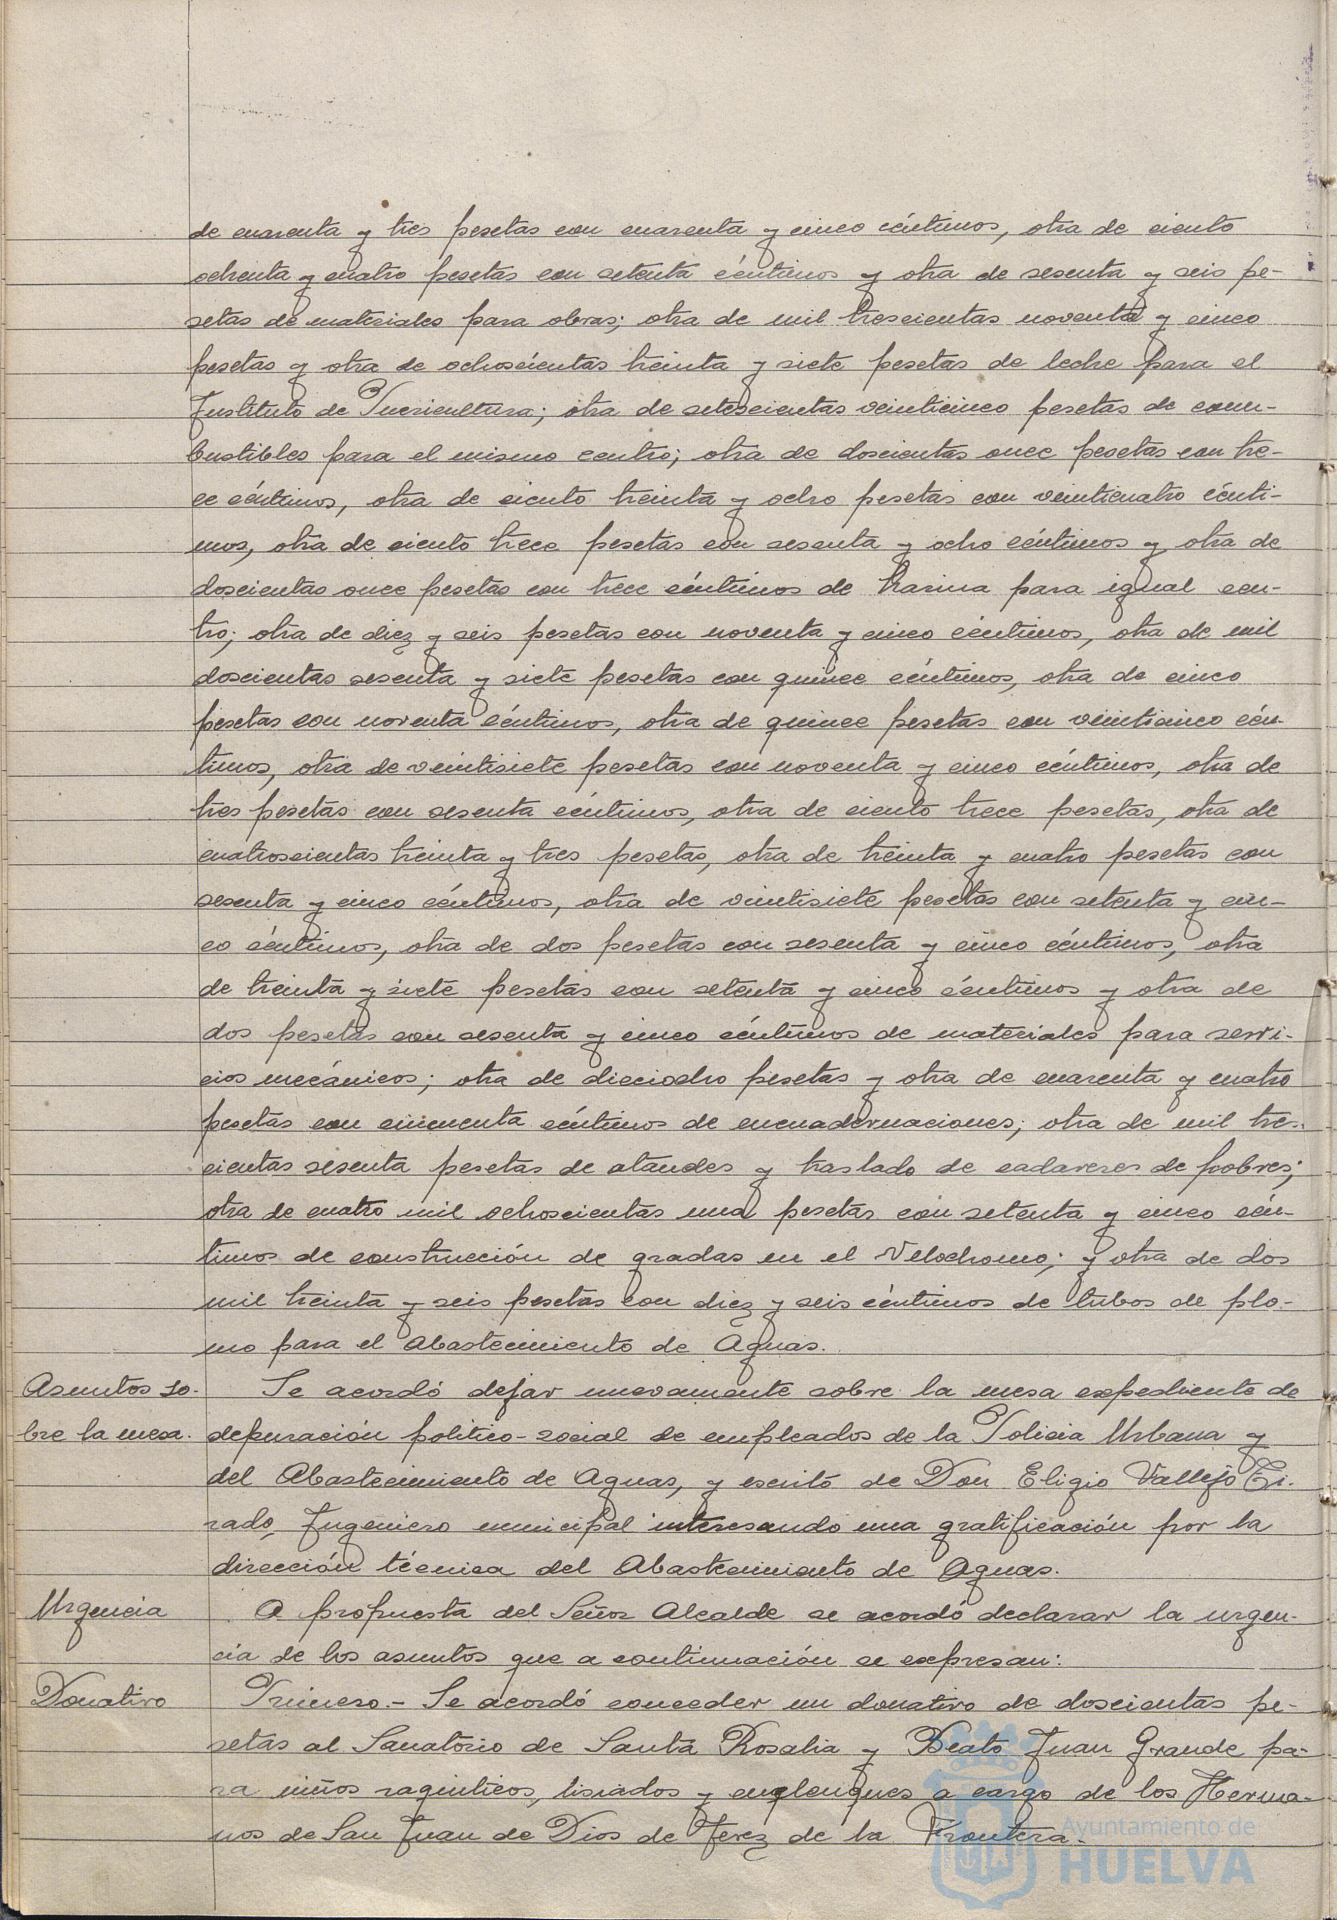 de cuarenta y tres pesetas con cuarenta y cinco céntimos, otra de ciento
ochenta y cuatro pesetas con setenta céntimos y otra de sesenta y seis pe-
setas de materiales para obras; otra de mil trescientas noventa y cinco
pesetas y otra de ochoscientas treinta y siete pesetas de leche para el
Instituto de Puericultura; otra de setescientas veinticinco pesetas de com-
bustibles para el mismo centro; otra de doscientas once pesetas con tre-
ce céntimos, otra de ciento treinta y ocho pesetas con veinticuatro cénti-
mos, otra de ciento trece pesetas con sesenta y ocho céntimos y otra de
doscientas once pesetas con trece céntimos de harina para igual cen-
tro; otra de diez y seis pesetas con noventa y cinco céntimos, otra de mil
doscientas sesenta y siete pesetas con quince céntimos, otra de cinco
pesetas con noventa céntimos, otra de quince pesetas con veinticinco cén-
timos, otra de veintisiete pesetas con noventa y cinco céntimos, otra de
tres pesetas con sesenta céntimos, otra de ciento trece pesetas, otra de
cuatroscientas treinta y tres pesetas, otra de treinta y cuatro pesetas con
sesenta y cinco céntimos, otra de veintisiete pesetas con setenta y cin-
co céntimos, otra de dos pesetas con sesenta y cinco céntimos, otra
de treinta y siete pesetas con setenta y cinco céntimos y otra de
dos pesetas con sesenta y cinco céntimos de materiales para servi-
cios mecánicos; otra de dieciocho pesetas y otra de cuarenta y cuatro
pesetas con cincuenta céntimos de encuadernaciones; otra de mil tres-
cientas sesenta pesetas de ataudes y traslado de cadaveres de pobres;
otra de cuatro mil ochoscientas una pesetas con setenta y cinco cén-
timos de construcción de gradas en el Velodromo; y otra de dos
mil treinta y seis pesetas con diez y seis céntimos de tubos de plo-
mo para el Abastecimiento de Aguas.
Asuntos so- Se acordó dejar nuevamente sobre la mesa expediente de
bre la mesa. depuración politico-social de empleados de la Policia Urbana y
del Abastecimiento de Aguas, y escrito de Don Eligio Vallejo Ti-
rado, Ingeniero municipal interesando una gratificación por la
dirección técnica del Abastecimiento de Aguas.
Urgencia A propuesta del Señor Alcalde se acordó declarar la urgen-
cia de los asuntos que a continuación se expresan:
Donativo Primero.- Se acordó conceder un donativo de doscientas pe-
setas al Sanatorio de Santa Rosalia y Beato Juan Grande pa-
ra niños raquiticos, lisiados y enclenques a cargo de los Herma-
nos de San Juan de Dios de Jerez de la Frontera.
Ayuntamiento de
HUELVA